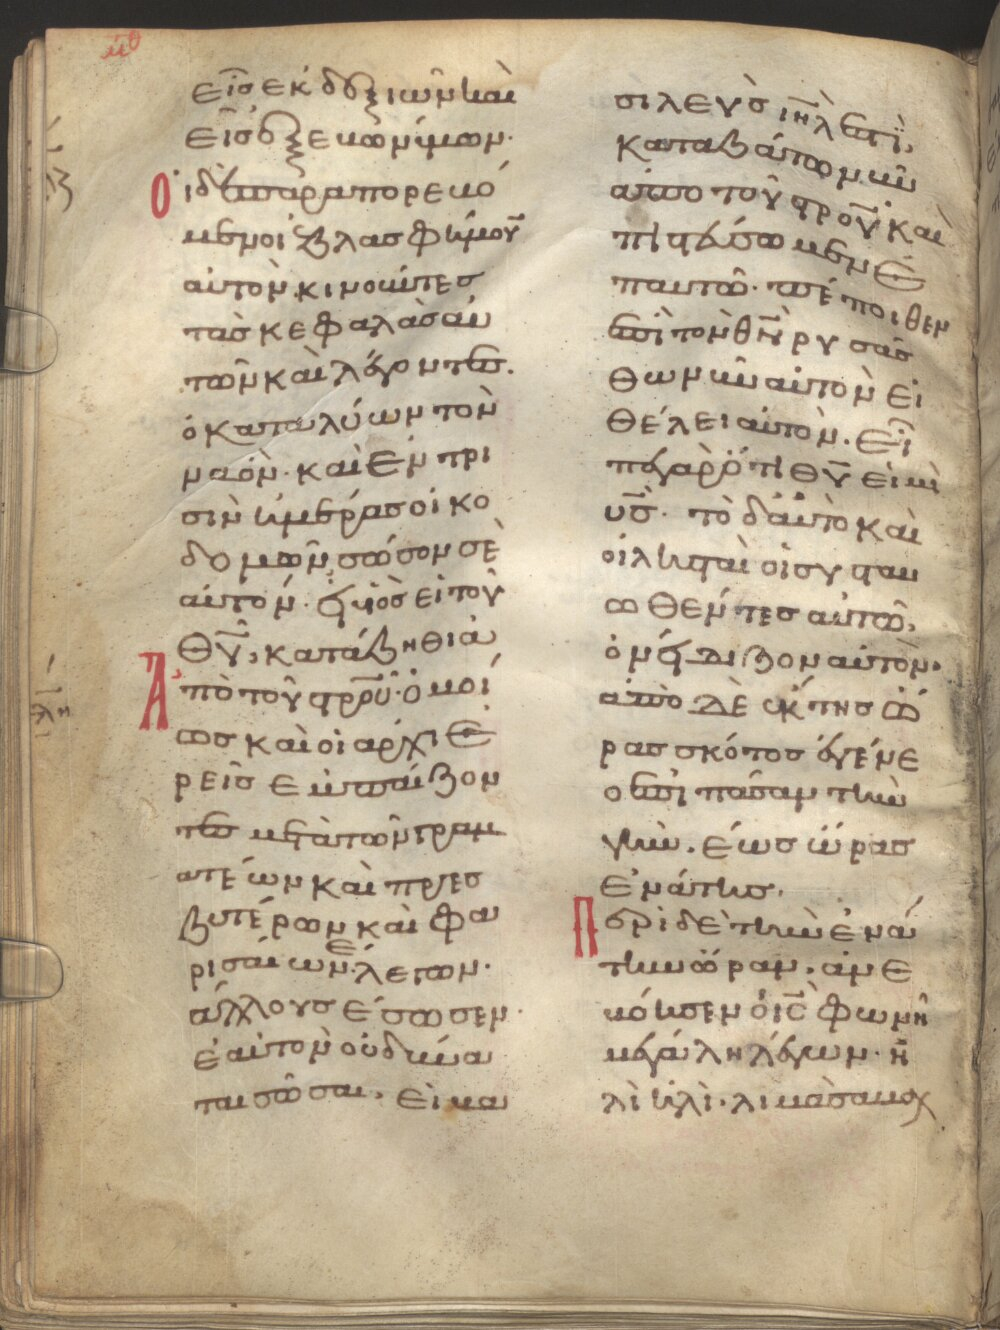 μθ
εἷς ἐκ δεξιῶν καὶ
εἷς ἐξ εὐωνύμων·
Οἱ δὲ παραπορευό
μενοι ἐβλασφήμουν
αὐτὸν κινοῦντες
τὰς κεφαλὰς αὐ
τῶν καὶ λέγοντες·
ὁ καταλύων τὸν
ναὸν· καὶ ἐν τρι
σὶν ἡμέραις οἰκο
δομῶν, σῶσον σε
αὐτόν· εἰ υἱὸς εἶ τοῦ
θυ, κατάβηθι ἀ
πὸ τοῦ στρου· ὁμοί
ως καὶ οἱ ἀρχιε
ρεῖς ἐμπαίζον
τες μετὰ τῶν γραμ
ατέων καὶ πρεσ
βυτέρων καὶ φα
ρισαίων ἔλεγον·
ἄλλους ἔσωσεν·
ἑαυτὸν οὐ δύνα
ται σῶσαι· εἰ βα
σιλεὺς ιηλ ἐστὶ,
καταβάτω νῦν
ἀπὸ τοῦ στρου καὶ
πιστεύσωμεν ἐ
π αυτῶ· πέποιθεν
ἐπὶ τὸν θν ρυσάσ
θω νῦν αὐτὸν εἰ
θέλει αὐτὸν· εἶ
πε γὰρ ὅτι θυ εἰμὶ
υς· τὸ δ αὐτὸ καὶ
οἱ λησταὶ οἱ συσταυ
ωθέντες αὐτῶ,
ὀνείδιζον αὐτὸν·
ἀπὸ δὲ ἕκτης ὥ
ρας σκότος ἐγένε
το ἐπὶ πᾶσαν τὴν
γῆν· ἕως ὥρας
ἐνάτης·
Περὶ δὲ τὴν ἐνά
την ὥραν, ἀνε
βόησεν ὁ ις φωνῆ
μεγάλη λέγων· ἠ
λὶ ἠλὶ· λιμὰ σαβαχ